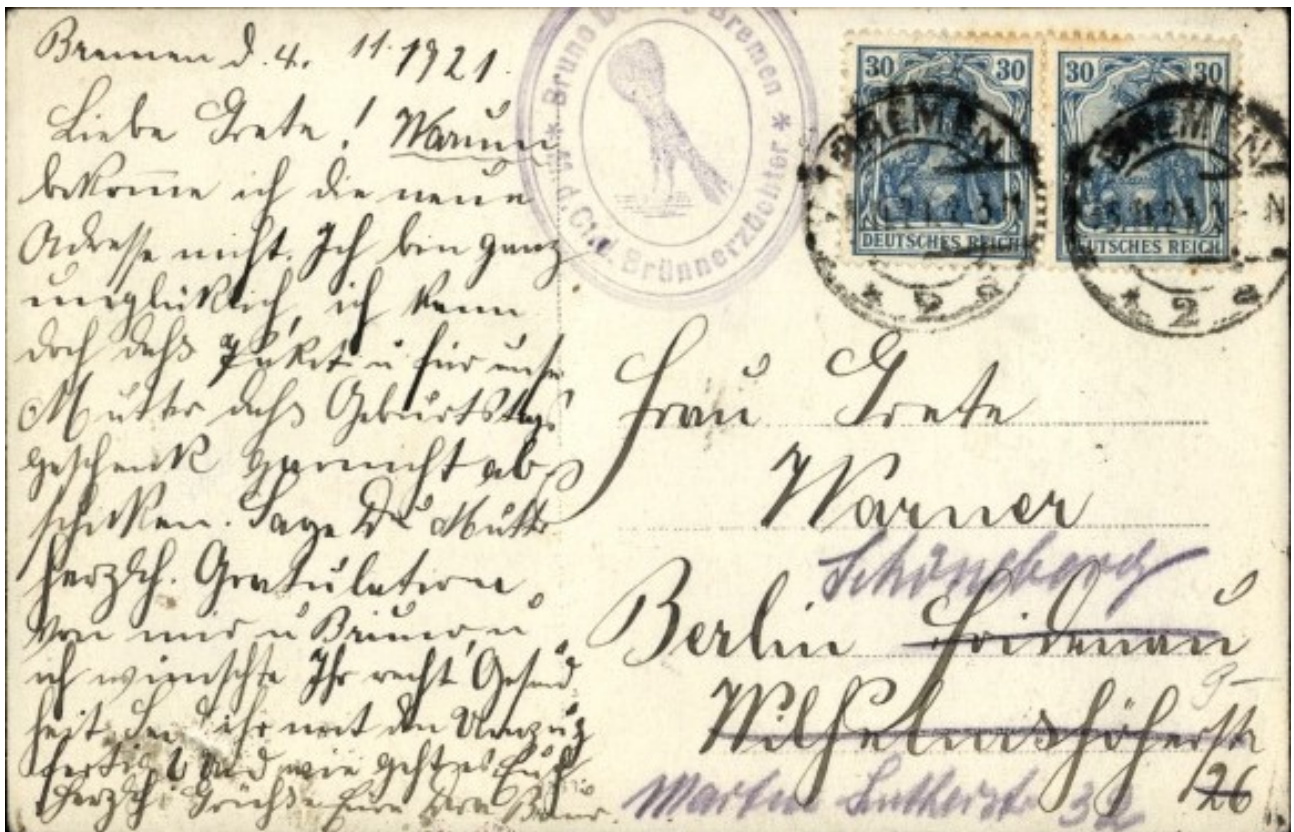 Bremen d. 4. 11. 1921.
Liebe Grete! Warum
bekomme ich die neue
Adresse nicht. Ich bin ganz
unglücklich, ich kann
doch dahs Paket u für unse
Mutter dahs Geburtstags
geschenk garnicht ab
schicken. Sage Du Mutter
herzlch. Gratulation
von mir u Bruno, u
ich wünschte Ihr recht Gesund
heit. ihr mit den Umzug
fertig? Und wie geht es Euch
Herzch. Grühse Eure
Bruno Bremen
M. d. Brünnerzüchter
30 30
DEUTSCHES REICH
30 30
DEUTSCHES REICH
BREMEN
2 a
BREMEN
2 a
Frau Grete
Warner
Schöneberg
Berlin Fridenau
Wilhelmshöherstr
26
Martin Lutherstr 32